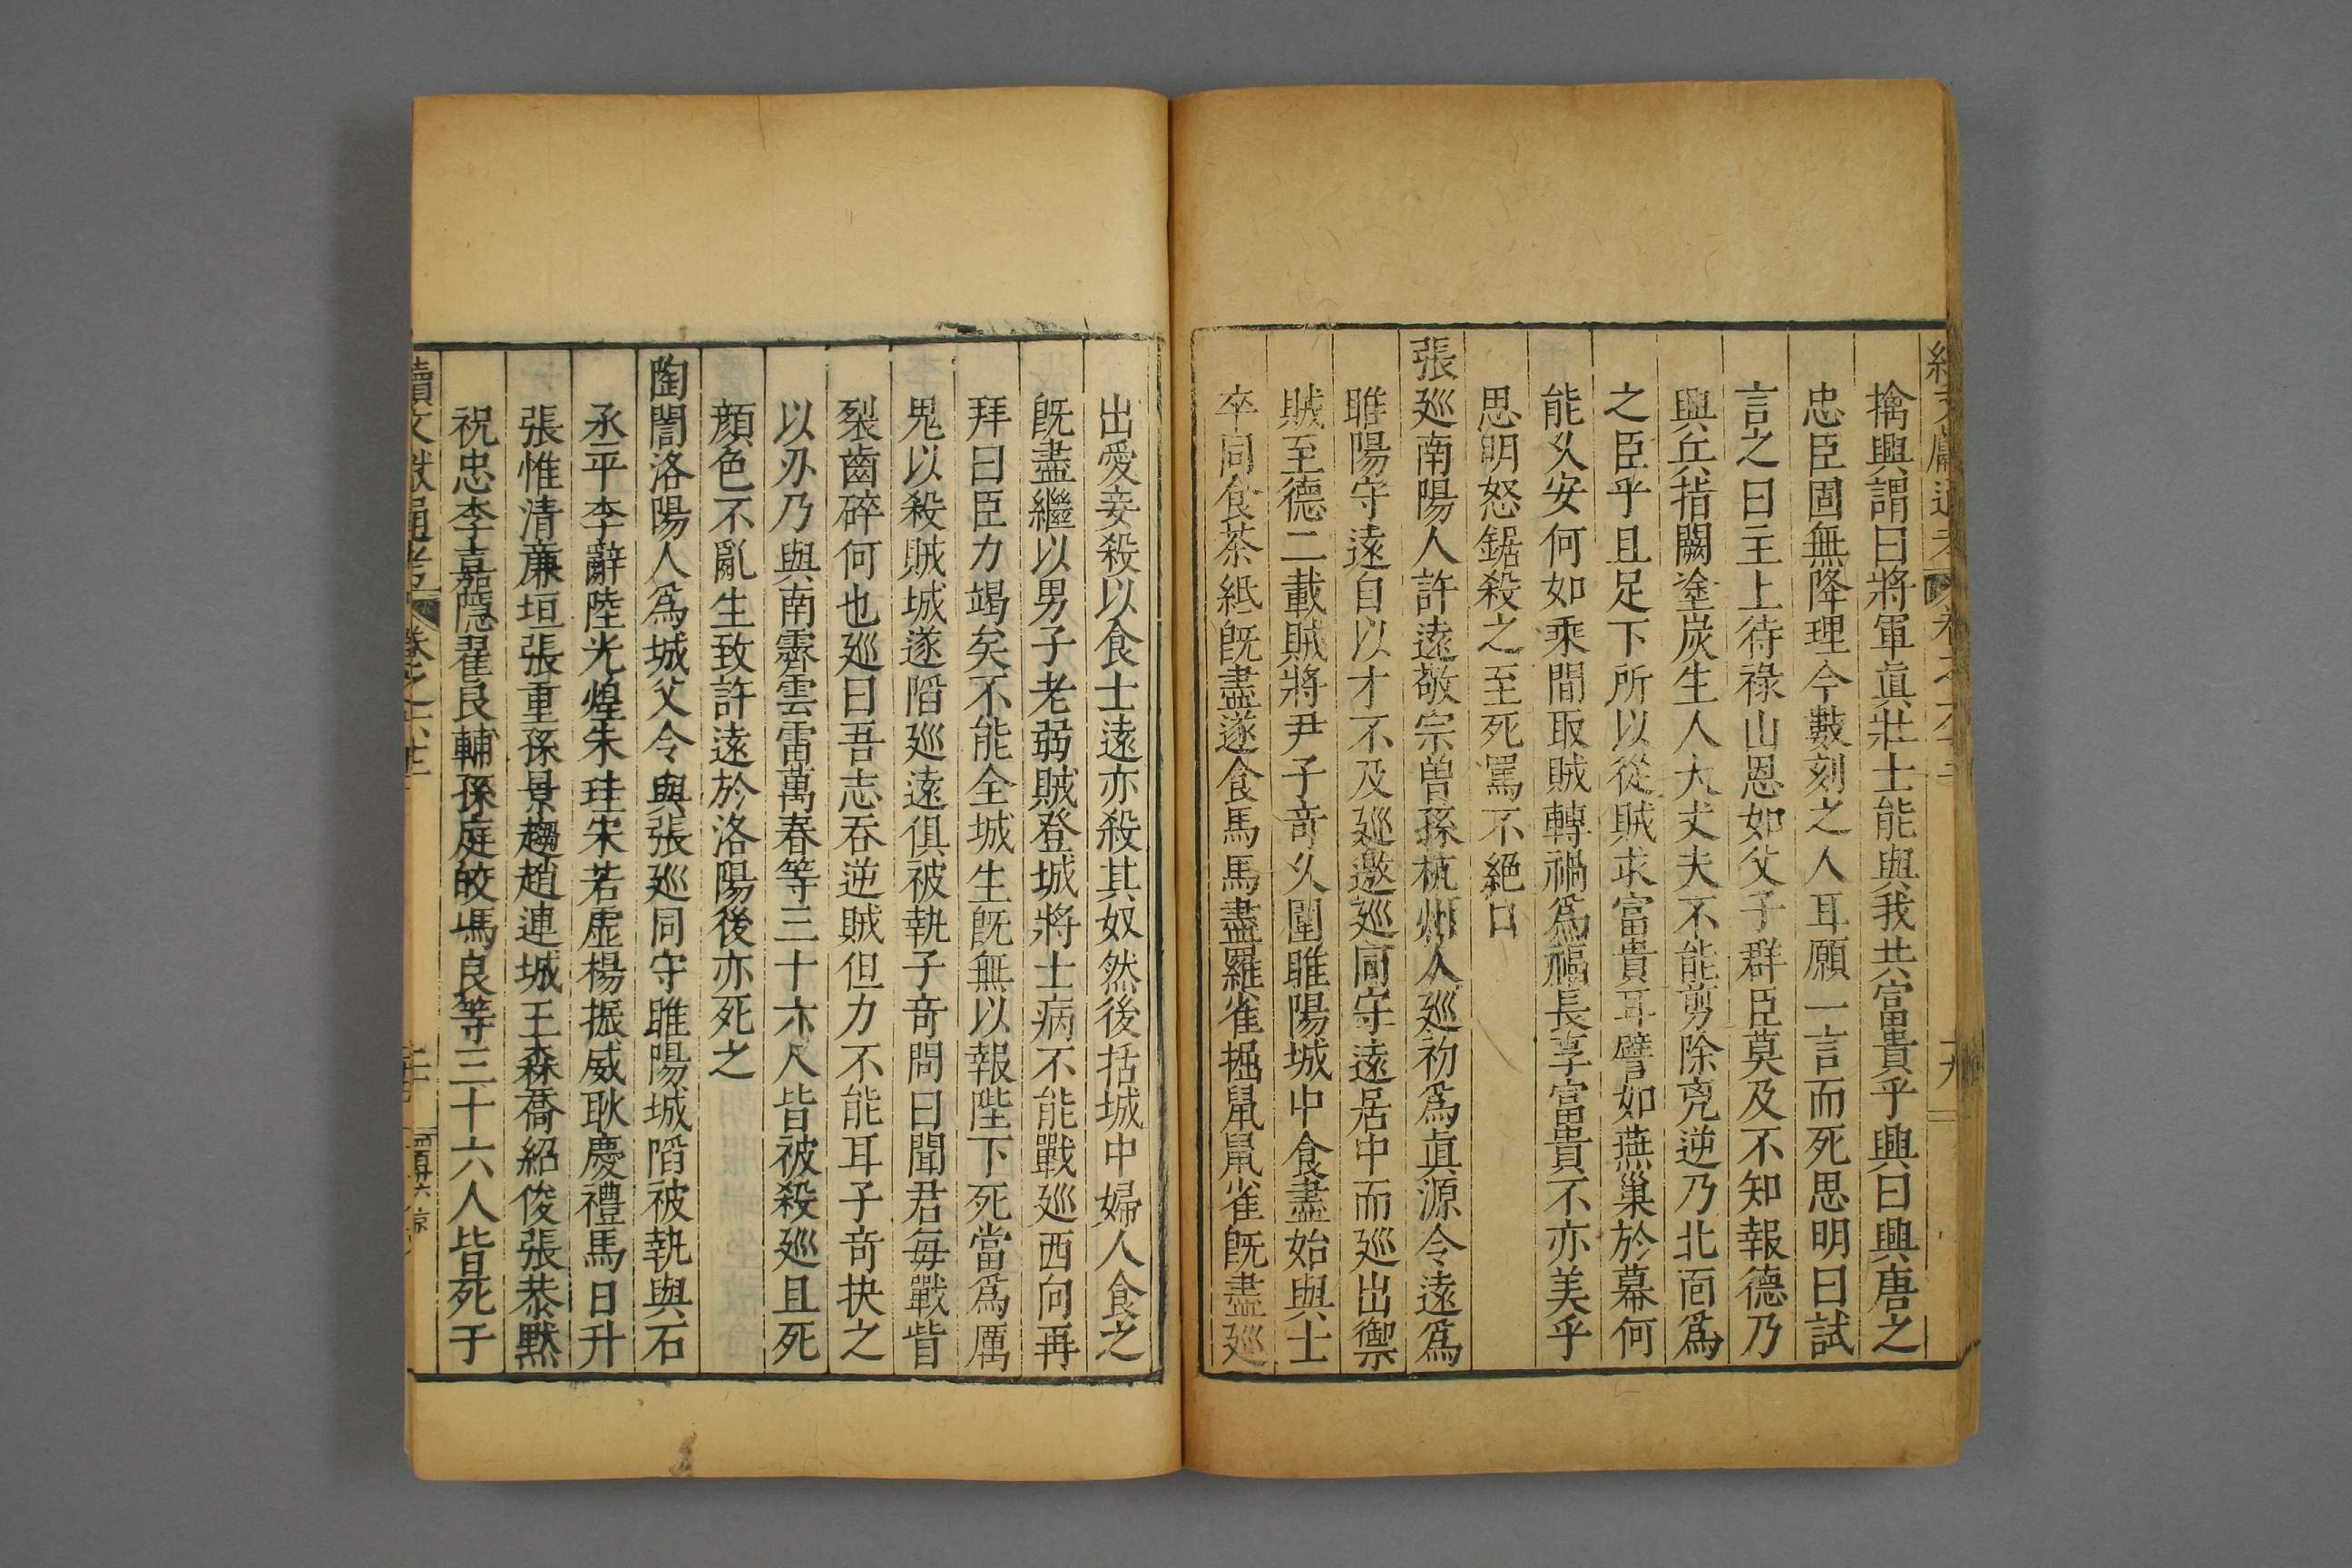 擒興謂曰將軍眞壯士能與我共富貴乎興曰興唐之
忠臣固無降理今數刻之人耳願一言而死思明曰試
言之曰主上待祿山恩如父子群臣莫及不知報德乃
興兵指闕塗炭生人大丈夫不能剪除兇逆乃北面爲
之臣乎且足下所以從賊求富貴耳譬如燕巢於幕何
能久安何如乘間取賊轉禍爲福長享富貴不亦美乎
思明怒鋸殺之至死罵不絕口
張廵南陽人許遠敬宗曾孫杭州人廵初爲眞源令遠爲
睢陽守遠自以才不及廵邀廵同守遠居中而廵出禦
賊至德二載賊將尹子竒久圍睢陽城中食盡始與士
卒同食茶紙旣盡遂食馬馬盡羅雀掘鼠鼠雀旣盡廵
出愛妾殺以食士遠亦殺其奴然後括城中婦人食之
旣盡繼以男子老弱賊登城將士病不能戰廵西向再
拜曰臣力竭矣不能全城生旣無以報陛下死當爲厲
鬼以殺賊城遂陷廵遠俱被執子竒問曰聞君每戰眥
裂齒碎何也廵曰吾志吞逆賊但力不能耳子竒抉之
以刃乃與南霽雲雷萬春等三十六人皆被殺廵且死
顏色不亂生致許遠於洛陽後亦死之
陶誾洛陽人爲城父令與張廵同守睢陽城陷被執與石
承平李辭陸光煌朱珪宋若虛楊振威耿慶禮馬日升
張惟清廉垣張重孫景趨趙連城王森喬紹俊張恭黙
祝忠李嘉隱翟良輔孫庭皎馮良等三十六人皆死于
續文獻通考 卷之六十三